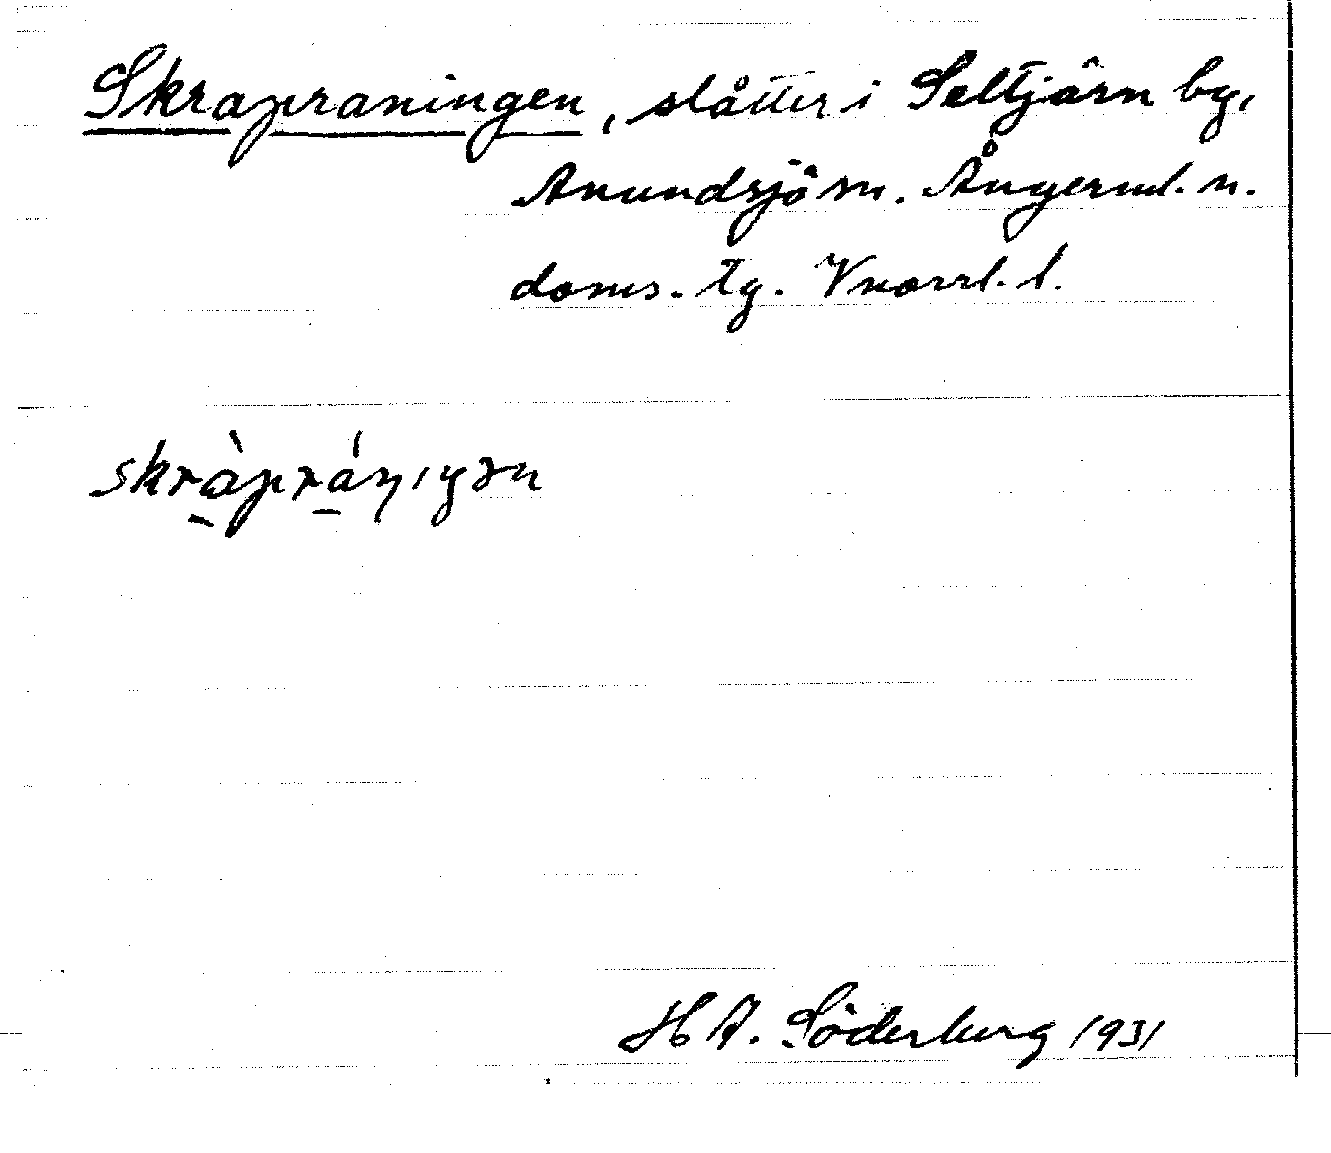 Skrapraningen, slåtter i Seltjärn by,
Anundsjö sn. Ångerml. n.
doms. tg. Vnorrl. l.
skràpráŋıŋən
H A. Söderberg 1931